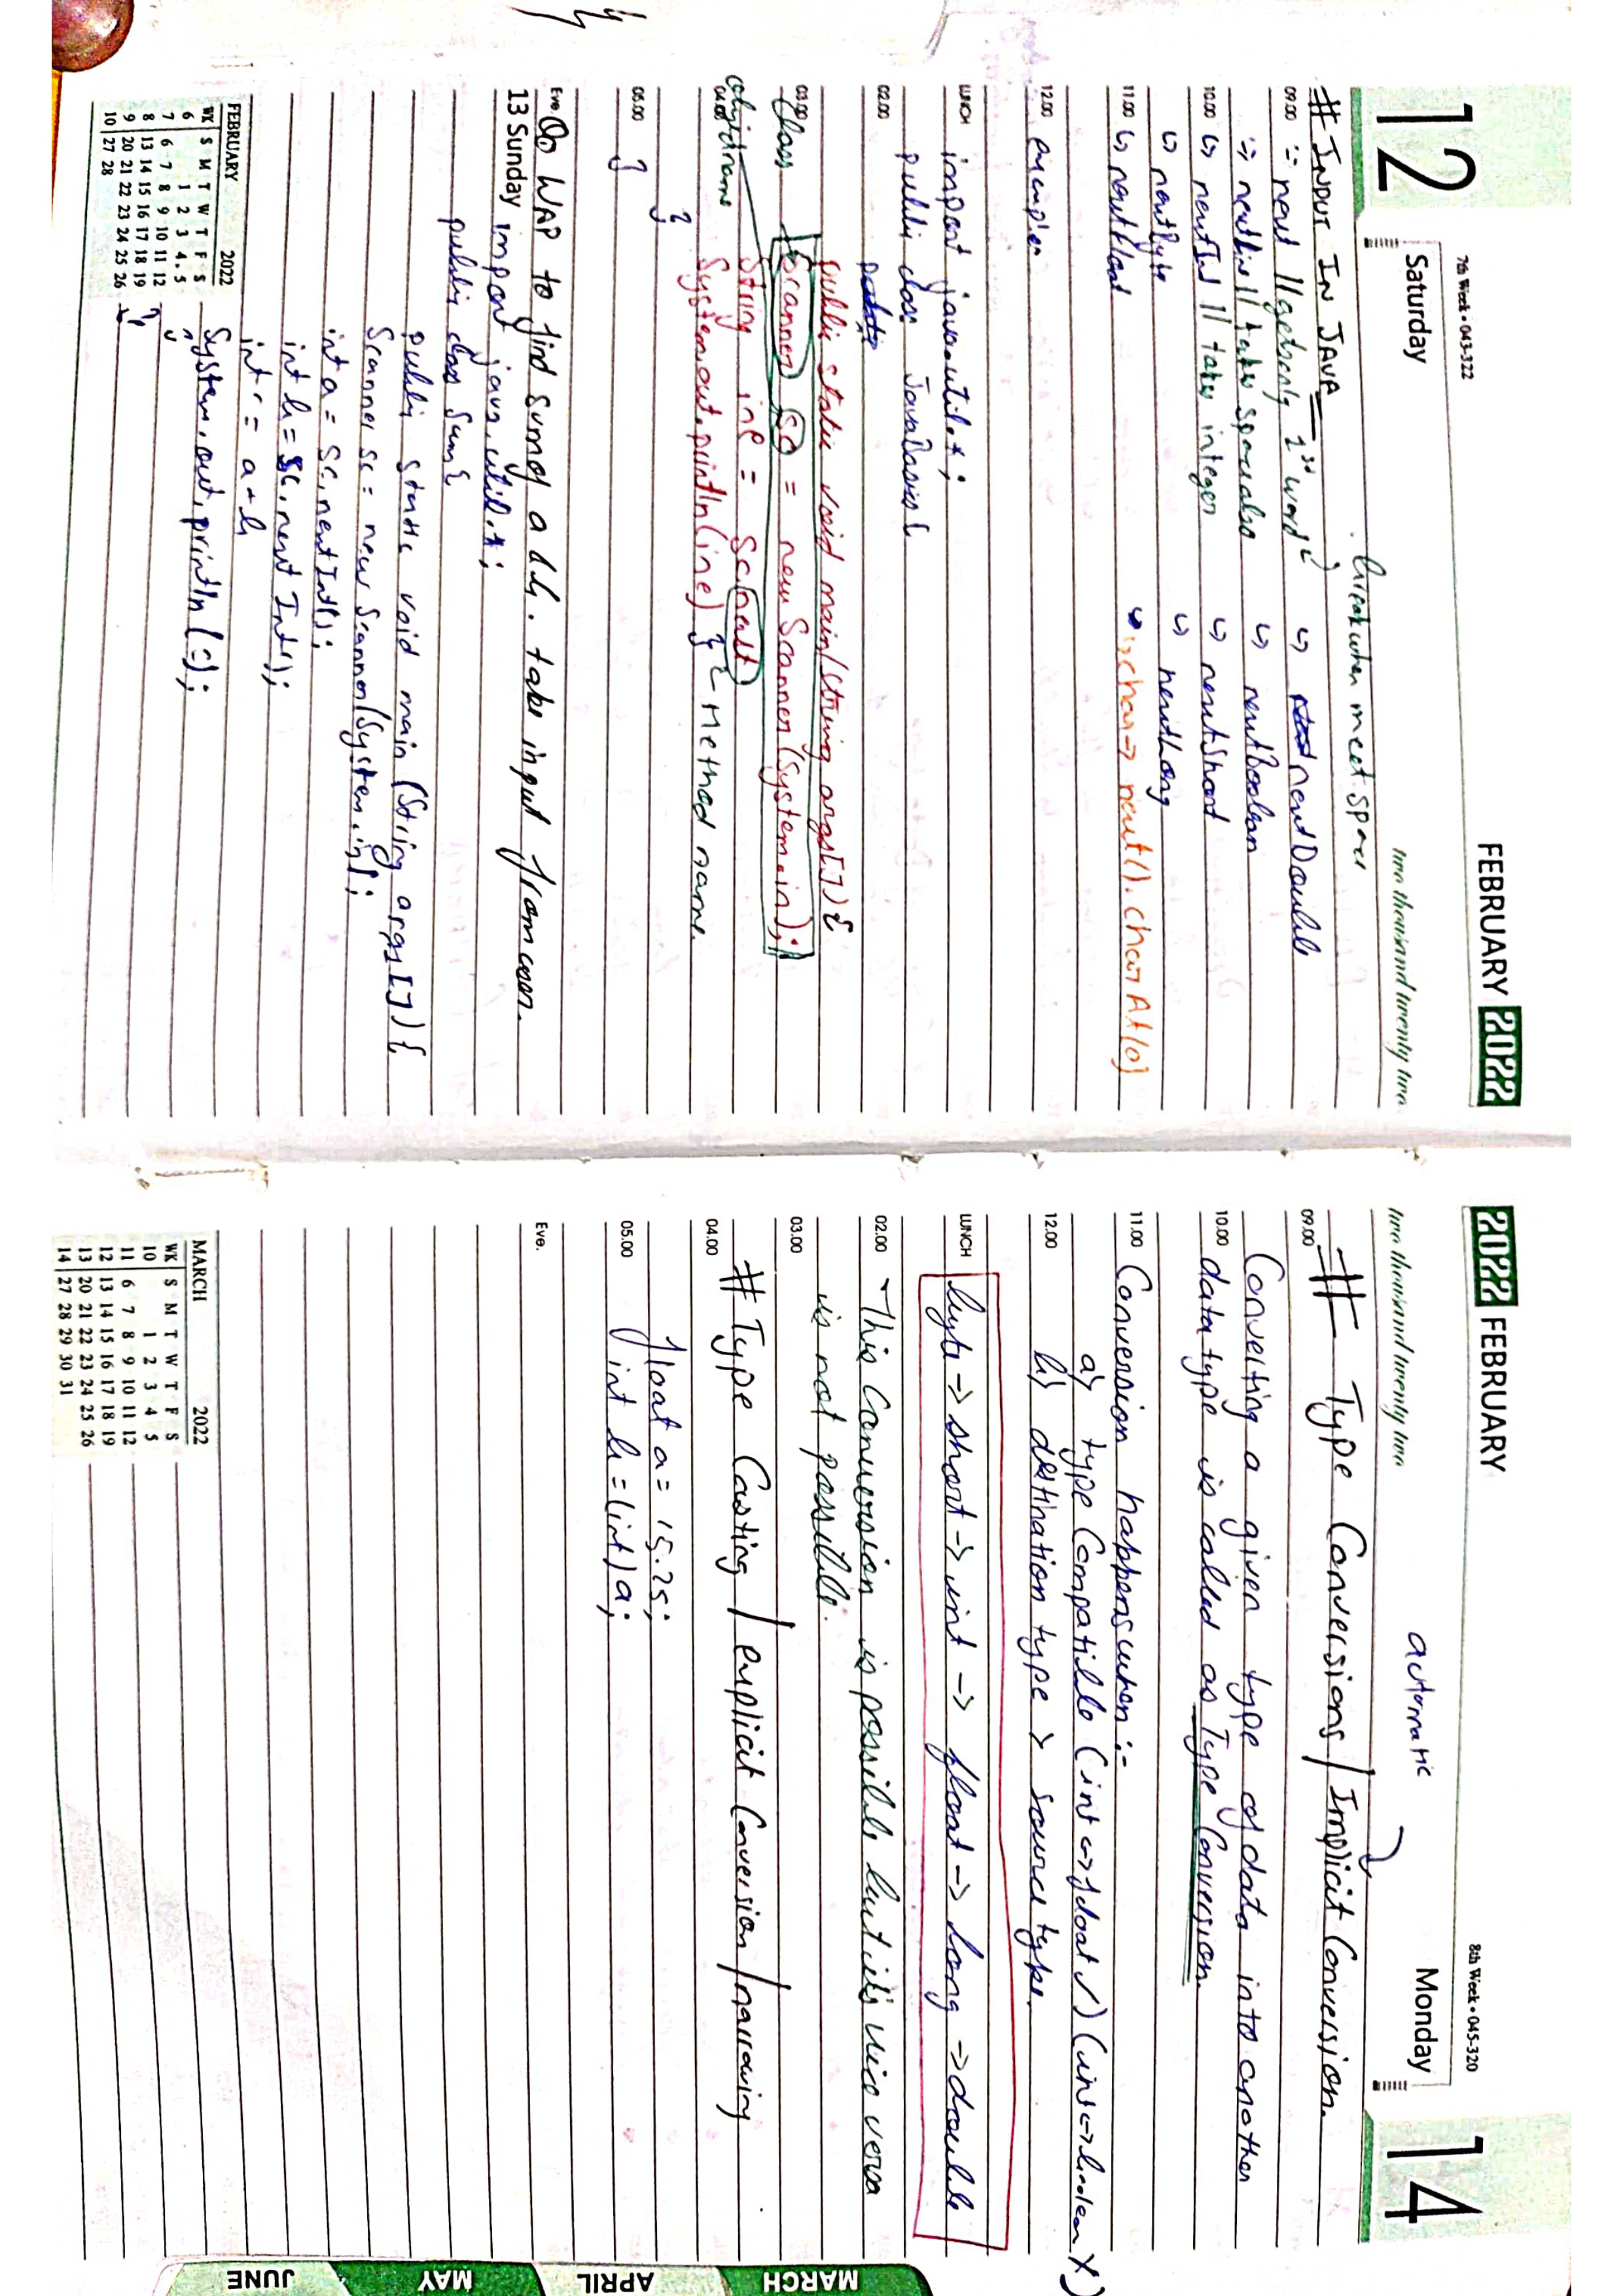 FEBRUARY 2022
12
7th Week • 043-322
Saturday
two thousand twenty two
break when meet space
# INPUT IN JAVA
09.00 next || gets only 1st word
nextLine || takes space also
10.00 nextInt || takes integer
nextByte
11.00 nextFloat
nextDouble
nextBoolean
nextShort
nextLong
char -> next().charAt(0)
12.00 examples
LUNCH import java.util.*;
public class JavaBasics {
02.00
public static void main(String args[]) {
03.00 class Scanner sc = new Scanner(System.in);
String ine = sc.next
object name
04.00 System.out.println(ine) } Method name.
}
05.00 }
Eve. Q. WAP to find sum of a & b. take input from user.
13 Sunday
import java.util.*;
public class Sum {
public static void main (String args[]) {
Scanner sc = new Scanner(System.in);
int a = sc.nextInt();
int b = sc.nextInt();
int c = a + b
System.out.println (c);
}
}
FEBRUARY 2022
WK S M T W T F S
6 1 2 3 4 5
7 6 7 8 9 10 11 12
8 13 14 15 16 17 18 19
9 20 21 22 23 24 25 26
10 27 28
2022 FEBRUARY
8th Week • 045-320
14
Monday
two thousand twenty two
automatic
# Type Conversions / Implicit Conversion.
09.00
Converting a given type of data into another
10.00 data type is called as Type Conversion.
11.00 Conversion happens when :-
a) type Compatible (int <-> float ✓) (int <-> boolean X)
12.00 b) destination type > source type.
LUNCH byte -> short -> int -> float -> long -> double
02.00 This Conversion is possible but it's vice versa
is not possible.
03.00
# Type Casting / explicit Conversion / narrowing
04.00
float a = 15.25;
05.00 int b = (int) a;
Eve.
MARCH 2022
WK S M T W T F S
10 1 2 3 4 5
11 6 7 8 9 10 11 12
12 13 14 15 16 17 18 19
13 20 21 22 23 24 25 26
14 27 28 29 30 31
MARCH
APRIL
MAY
JUNE